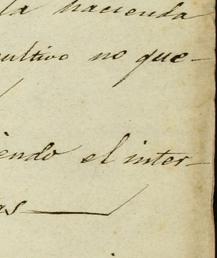 la hacienda
cultivo no que-
endo el inter-
as